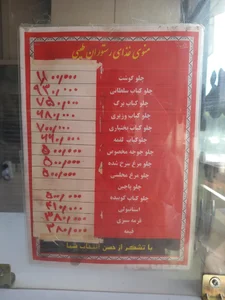 منوی غذای رستوران طلایی
چلو گوشت
چلو کباب سلطانی ۹۳۰/۰۰۰
چلو کباب برگ ۷۵۰/۰۰۰
چلو کباب وزیری ۶۸۰/۰۰۰
چلو کباب بختیاری ۷۰۰/۰۰۰
چلو کباب لقمه
چلو جوجه مخصوص ۵۰۰/۰۰۰
چلو مرغ سرخ شده ۵۰۰/۰۰۰
چلو مرغ مجلسی ۵۰۰/۰۰۰
چلو
چلو کباب کوبیده
استانبولی ۴۱۰/۰۰۰
قرمه سبزی ۳۸۰/۰۰۰
قیمه ۳۸۰/۰۰۰
با تشکر از حسن انتخاب شما